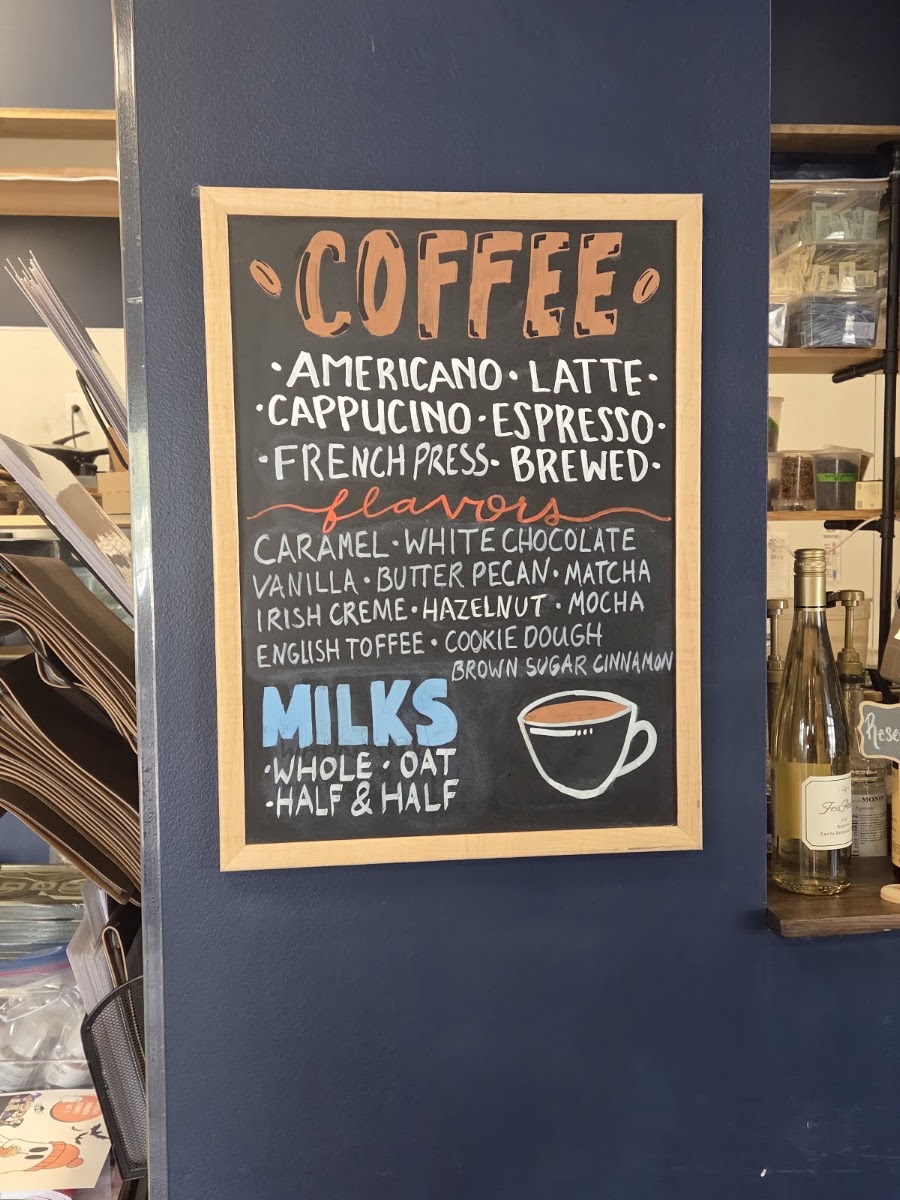 COFFEE
·AMERICANO·LATTE·
·CAPPUCINO·ESPRESSO·
·FRENCH PRESS·BREWED·
flavors
CARAMEL·WHITE CHOCOLATE
VANILLA·BUTTER PECAN·MATCHA
IRISH CREME·HAZELNUT·MOCHA
ENGLISH TOFFEE·COOKIE DOUGH
BROWN SUGAR CINNAMON
MILKS
·WHOLE·OAT
·HALF & HALF
MONIN